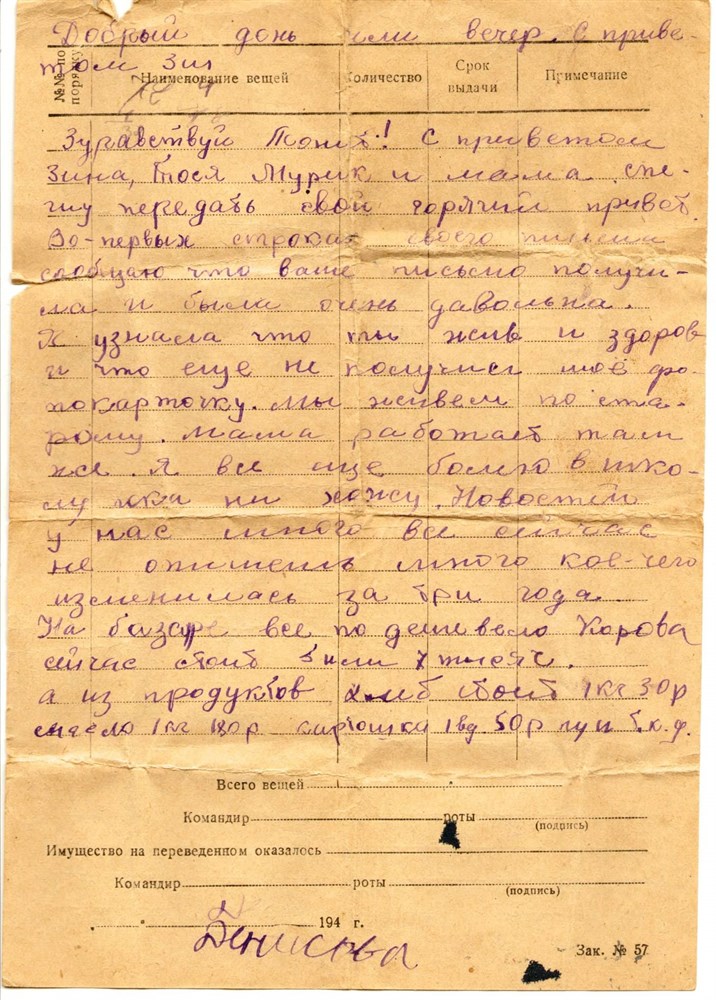 Добрый день или вечер. С приве-
том Зин
№№ по порядку
Наименование вещей
Количество
Срок выдачи
Примечание
Здравствуй Толик! С приветом
Зина, Тося Мурик и мама. спе-
шу передать свой горячий привет.
Во-первых строках своего письма
сообщаю что ваше письмо получи-
ла и была очень давольна.
Я узнала что ты жив и здоров
и что еще не получил моё фо-
токарточку. Мы живем по ста-
рому. мама работает там
же. Я все еще болею в шко-
лу пка ни хожу. Новостей
у нас много все сейчас
не опишешь много кое-чего
изменилась за три года.
На базаре все по дешевело Корова
сейчас стоит 5 или 7 тысяч.
а из продуктов хлиб стоит 1 кг 30 р
масло 1 кг 180 р картошка 1 вд. 50 р
Всего вещей
Командир роты
(подпись)
Имущество на переведенном оказалось
Командир роты
(подпись)
194 г.
Денисова
Зак. № 57